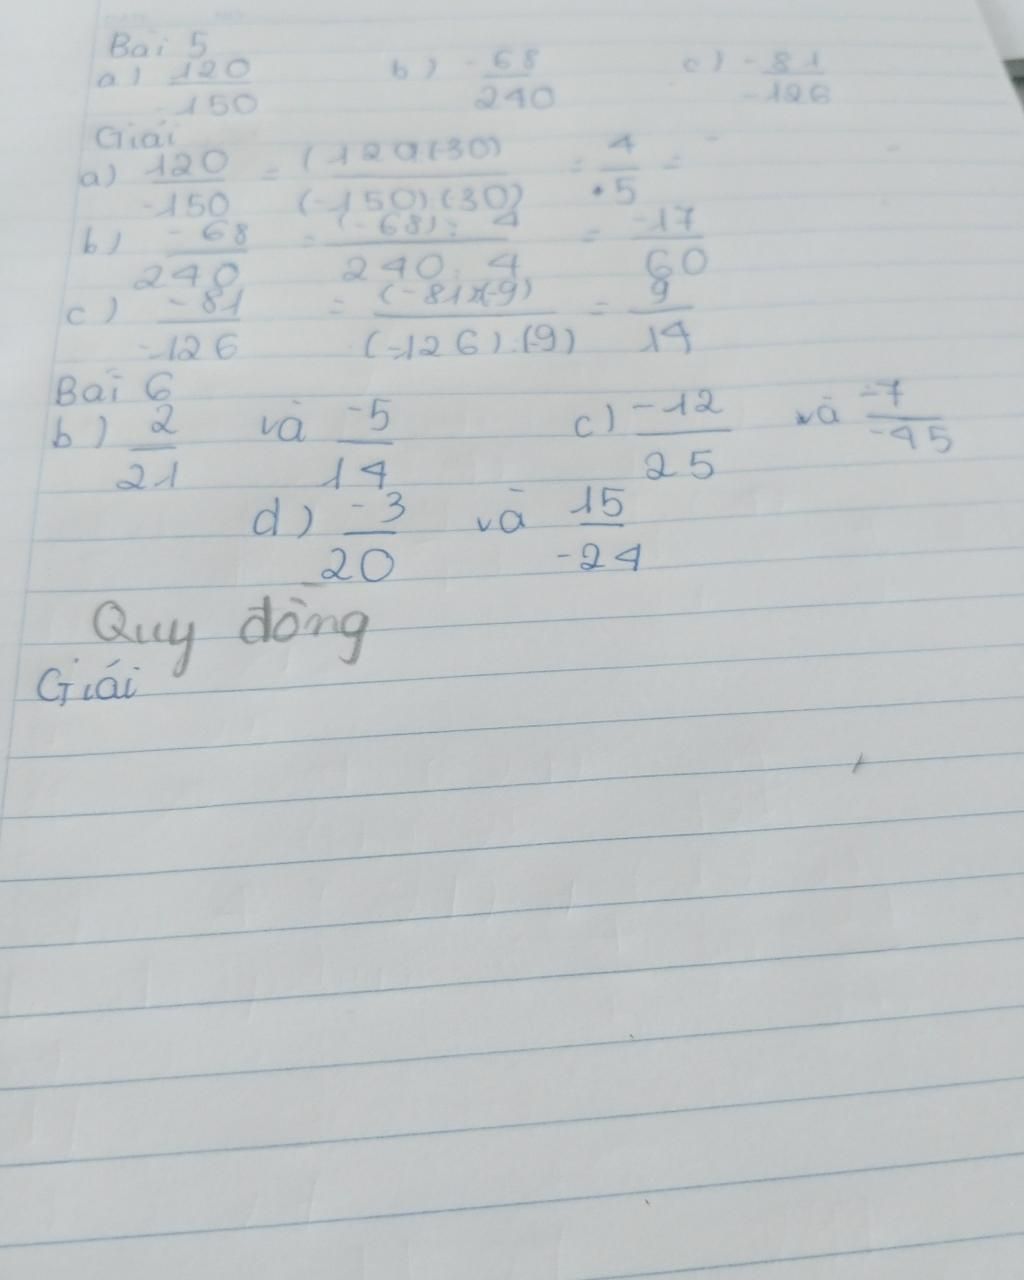 Bài 5
a) 120/-150 b) -68/240 c) -81/-126
Giải
a) 120/-150 = (120):(30)/(-150):(30) = 4/-5 =
b) -68/240 = (-68):4/240:4 = -17/60
c) -81/-126 = (-81):(-9)/(-126):(-9) = 9/14
Bài 6
b) 2/21 và -5/14 c) -12/25 và -7/-45
d) -3/20 và 15/-24
Quy đồng
Giải